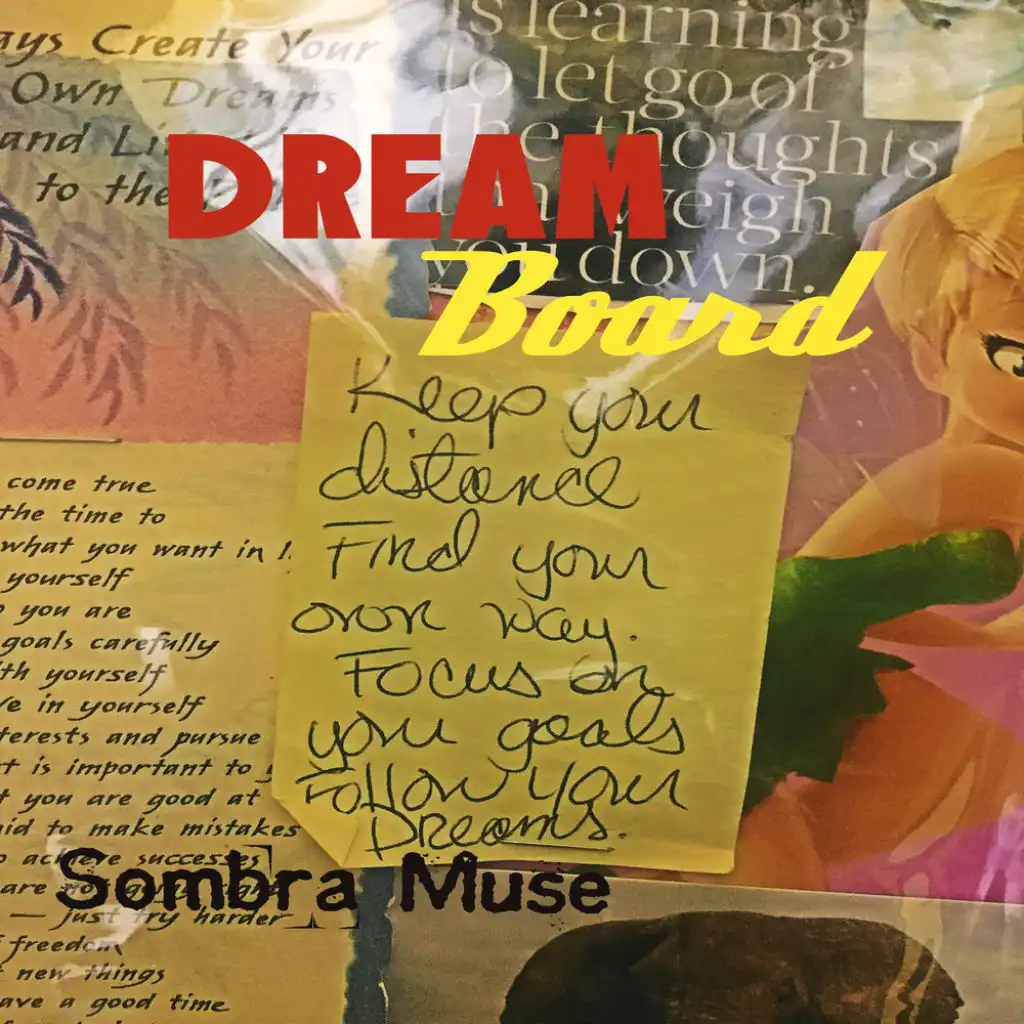 ays Create Your
Own Dreams
and
to the
is learning
to let go of
the thoughts
weigh
you down.
DREAM
Board
Keep your
distance
Find your
own way.
Focus on
your goals
Follow Your
Dreams.
come true
the time to
what you want in l
yourself
you are
goals carefully
th yourself
ve in yourself
terests and pursue
t is important to y
t you are good at
id to make mistakes
o achieve successes
are not going right
— just try harder
f freedom
t new things
ave a good time
Sombra Muse